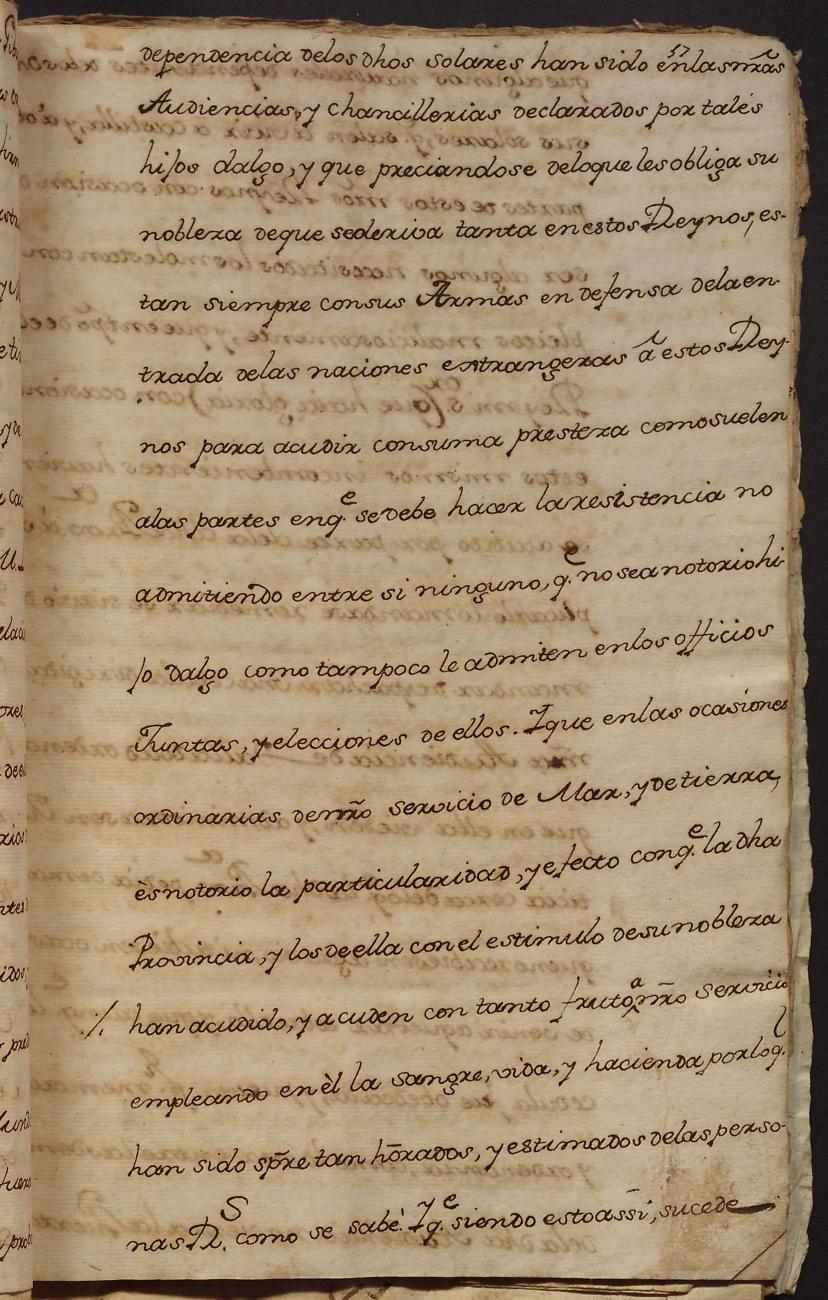 17
dependencia delos dhos solares han sido enlas nrãs
Audiencias, y chancillerias declarados por tales
hijos dalgo, y que preciandose deloque les obliga su
nobleza deque sederiva tanta en estos Reynos, es-
tan siempre consus Armas en defensa dela en-
trada delas naciones extrangeras â estos Rey-
nos para acudir consuma presteza como suelen
alas partes enq.e se debe hacer la resistencia no
admitiendo entre si ninguno, q.e no sea notorio hi-
jo dalgo como tampoco le admiten enlos officios
Juntas, y elecciones de ellos. Y que enlas ocasiones
ordinarias de nrõ servicio de Mar, y de tierra,
ès notorio la particularidad, y efecto conq.e la dha
Provincia, y los de ella con el estimulo de su nobleza
han acudido, y acuden con tanto fruto a nrõ servicio
empleando en èl la sangre, vida, y hacienda por lo q.l
han sido spr̃e tan hõrados, y estimados delas perso-
nas R.S como se sabe. Y q.e siendo esto assi, sucede